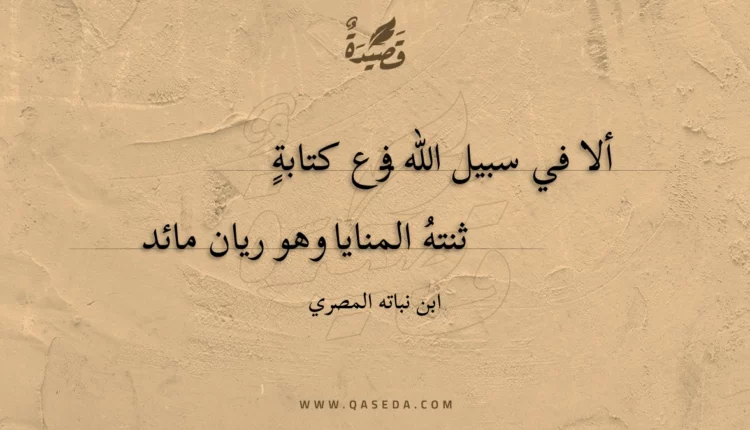 قَصِيْدَةٌ
ألا في سبيل الله فرع كتابةٍ
ثنتهُ المنايا وهو ريان مائد
ابن نباته المصري
WWW.QASEDA.COM